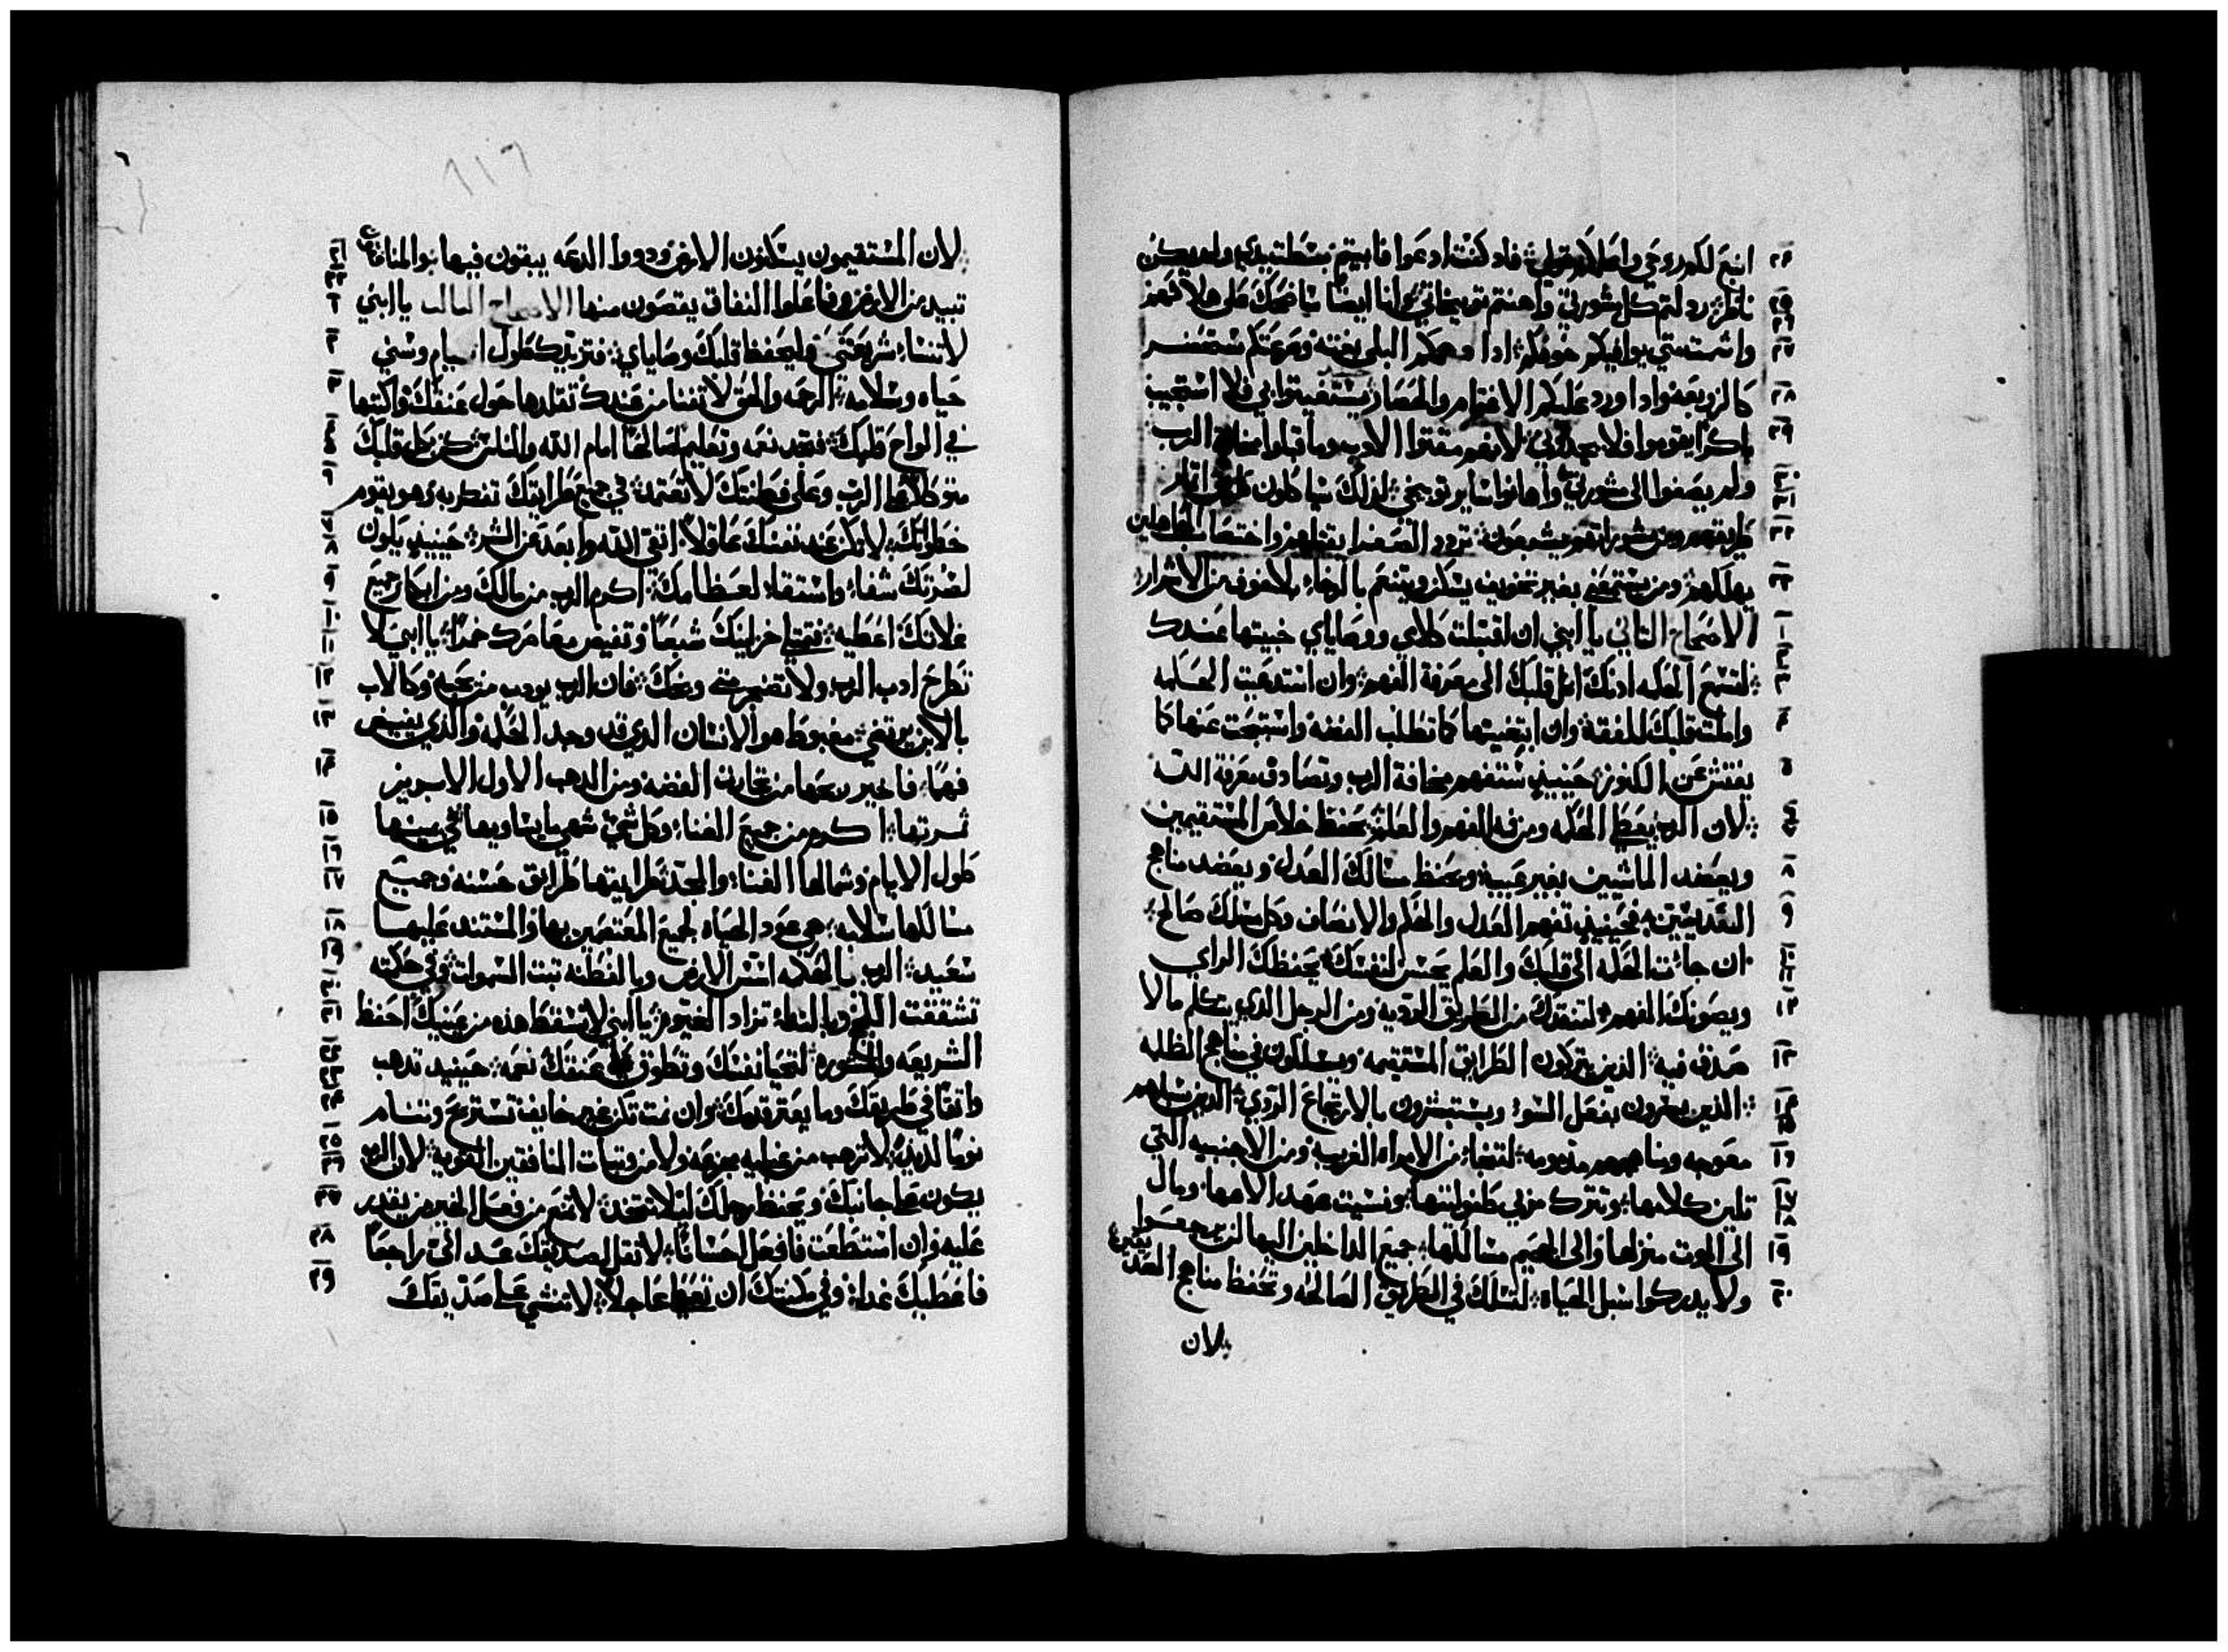 انبع لكم روحي واظهر لكم قولي فاد كنت ادعوا فابيتم بسطت يدي ولم يكن
ناظر رد لتم كل مشورتي واهنتم توبيخاتي وانا ايضا ساضحك على هلاكهم
واشمت متي يوافيكم خوفكم ادا وهمكم البلى بغته وصرعتكم ستحضر
كالزوبعه وادا ورد عليكم الاغتمام والحصار يستغيتوا بي فلا استجيب
باكرا يقوموا فلا يجدوني لانهم مقتوا الادب وما قبلوا مخافه الرب
ولم يصغوا الى مشورتي واهانوا ساير توبيخي لدلك سياكلون اتمار
طريقهم ومن مشوراتهم يشبعون تردد الضعفا يقتلهم واختصاب الجاهلين
يهلكهم ومن يستمعني بغير تخويف يسكن ويتنعم بالرخاء بلا خوف من الاشرار
الاصحاح التاني يا ابني ان اقتبلت كلامي ووصاياي خبيتها عندك
لتسمع الحكمه ادنك امل قلبك الى معرفة الفهم وان استدعيت الحكمه
واملت قلبك للفقه وان ابتغيتها كما تطلب الفضه واستبحت عنها كا
يفتش عن الكنوز حينيد ستفهم مخافة الرب وتصادف معرفة الله
لان الرب يعطي الحكمه ومن فيه الفهم والعلم يحفظ خلاص المستقيمين
ويعضد الماشيين بغير عيب ويحفظ مسالك العدل ويعضد مناهج
القديسين فحينيد تفهم العدل والحكم والانصاف وكل مسلك صالح
ان جاءت الحكمه الى قلبك والعلم يحسن لنفسك يحفظك الراي
ويصونك الفهم لتنقدك من الطريق الرديه ومن الرجل الدي يتكلم مالا
صدق فيه الدين يتركون الطرايق المستقيمه ويسلكون في مناهج الظلمه
الدين يفرحون بفعل السوء ويستبشرون بالارتجاع الردي الدين سبلهم
معوجه ومناهجهم مدمومه لتنجا من الامراه الغريبه ومن الاجنبيه التي
تلين كلامها وتترك مربي طفوليتها ونسيت عهد الاهها ومال
الى الموت منزلها والى الجحيم مسالكها جميع الداخلين اليها لن يرجعوا
ولا يدركوا سبل الحياه لتسلك في الطريق الصالحه وتحفظ مناهج الصديقين
لان
لان المستقيمون يسكنون الارض ودووا الدعه يبقون فيها والمنافقين
تبيد من الارض وفاعلوا النفاق يقصون منها الاصحاح التالت يا ابني
لا تنسا شريعتي وليحفظ قلبك وصاياي فتزيدك طول ايام وسني
حياه وسلامه الرحمه والحق لا تفنيا من عندك تقلدها حول عنقك واكتبها
في الواح قلبك فتجد نعمه وتعليم صالحا امام الله والناس كن بكل قلبك
متوكلا على الرب وعلى فطنتك لا تعتمد في جميع طرايقك تفطر به وهو يقوم
خطواتك لا تكن عند نفسك عاقلا اتق الله وابعد عن الشر حينيد يكون
لسرتك شفاء واستقاء لعظامك اكرم الرب من مالك ومن ابكار جميع
غلاتك اعطيه فتمتلي خزاينك شبعا وتفيض معاصرك خمرا يا ابني لا
تطرح ادب الرب ولا تضجر متي وبخك فان الرب يودب من يحبه وكالاب
بالابن يرتضي مغبوط هو الانسان الدي قد وجد الحكمه والدي يفيض
فهما فاخير ربحها من تجارة الفضه ومن الدهب الاول الابريز
تمرتها اكرم من جميع الغنا وكل شي شهي ما يساويها في يمينها
طول الايام وشمالها الغنا والمجد طرايقها طرايق حسنه وجميع
مسالكها سلامه هي عود الحياه لجميع المعتصمين بها والمستند عليها
سعيد الرب بالحكمه اسس الارض وبالفطنه تبت السموات وفي حكمته
تشققت اللجج وبالنطا تزاد الغيوم يا ابني لا تسقط هده من عينيك احفظ
الشريعه والمشوره لتحيا نفسك وتطوق على عنقك نعمه حينيد تدهب
واتقا في طريقك وما يعتر قدمك وان نمت تكن غير خايف تستريح وتنام
نوما لديدا لا ترهب من غيله بجزعه ولا من وتبات المنافقين القويه لان الرب
يكون على جانبك ويحفظ رجلك ليلا تتخد لا تمنع من فعل الخير من يقدر
عليه وان استطعت فافعل احسانا لا تقل لصديقك غد الي راجعا
فاعطيك غدا وفي مكنتك ان تعطي عاجلا لا تنشي على صديقك